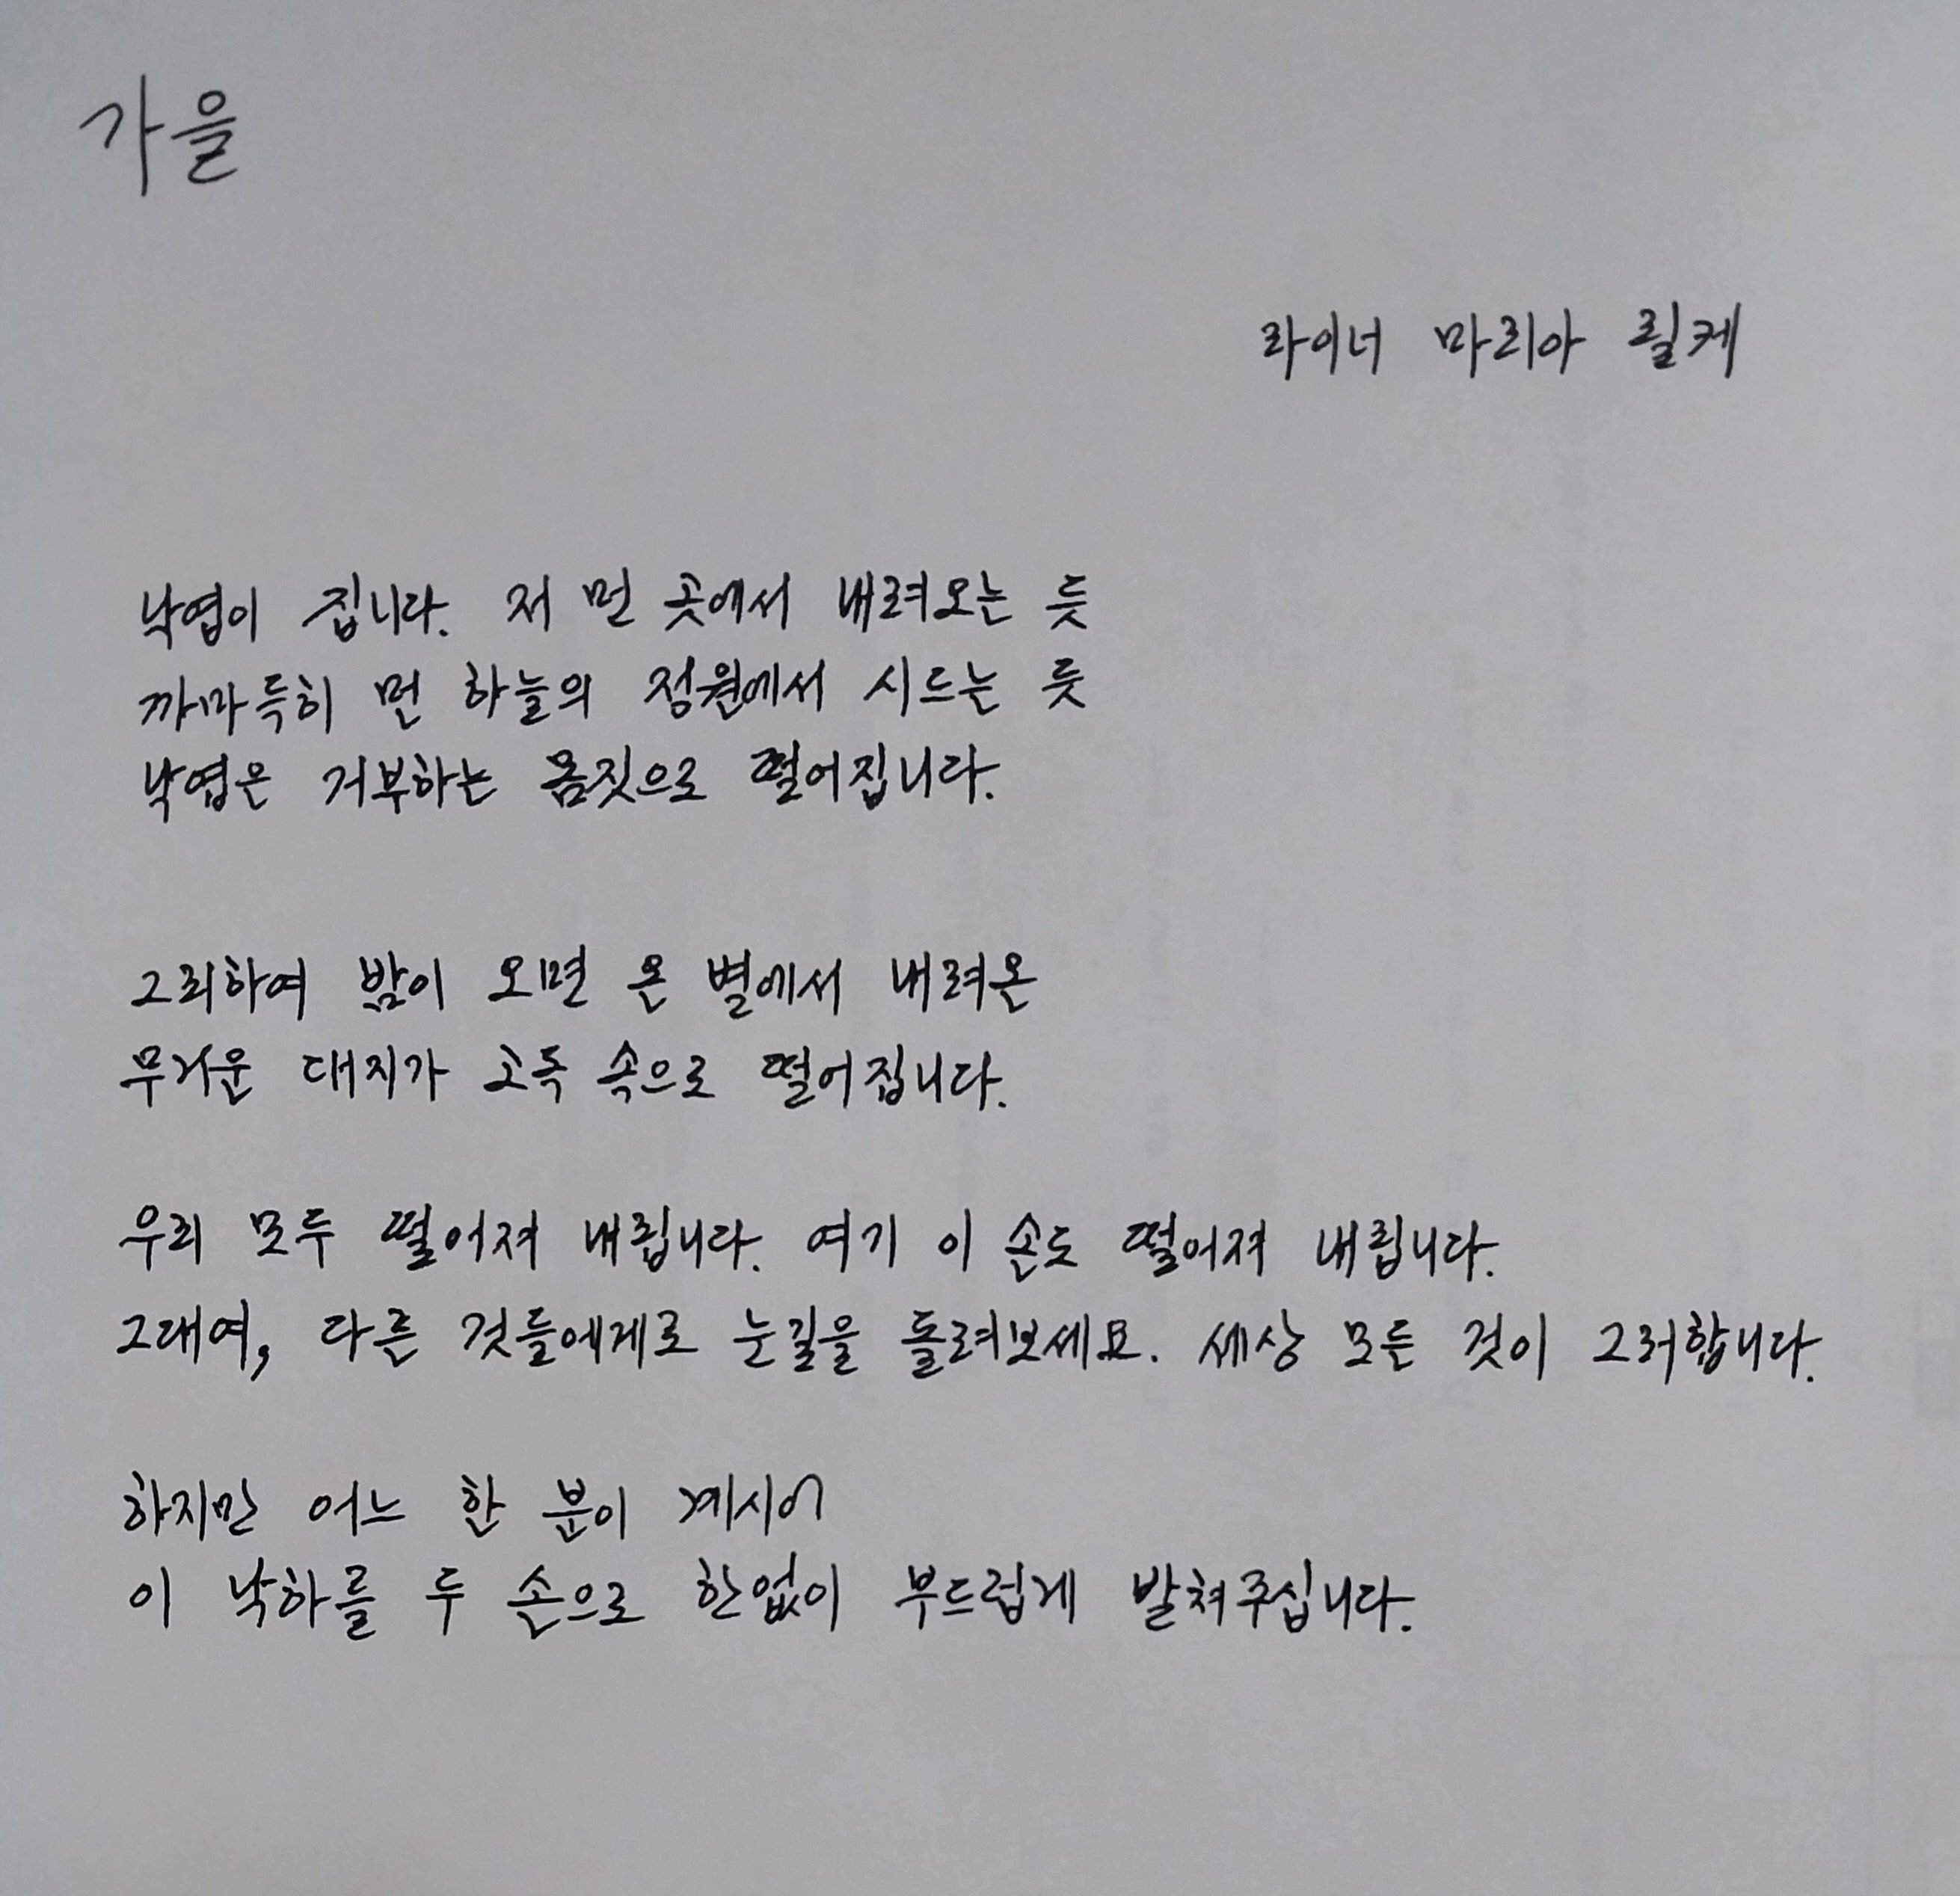 가을
라이너 마리아 릴케
낙엽이 집니다. 저 먼 곳에서 내려오는 듯
까마득히 먼 하늘의 정원에서 시드는 듯
낙엽은 거부하는 몸짓으로 떨어집니다.
그리하여 밤이 오면 온 별에서 내려온
무거운 대지가 고독 속으로 떨어집니다.
우리 모두 떨어져 내립니다. 여기 이 손도 떨어져 내립니다.
그대여, 다른 것들에게로 눈길을 돌려보세요. 세상 모든 것이 그러합니다.
하지만 어느 한 분이 계시어
이 낙하를 두 손으로 한없이 부드럽게 받쳐주십니다.